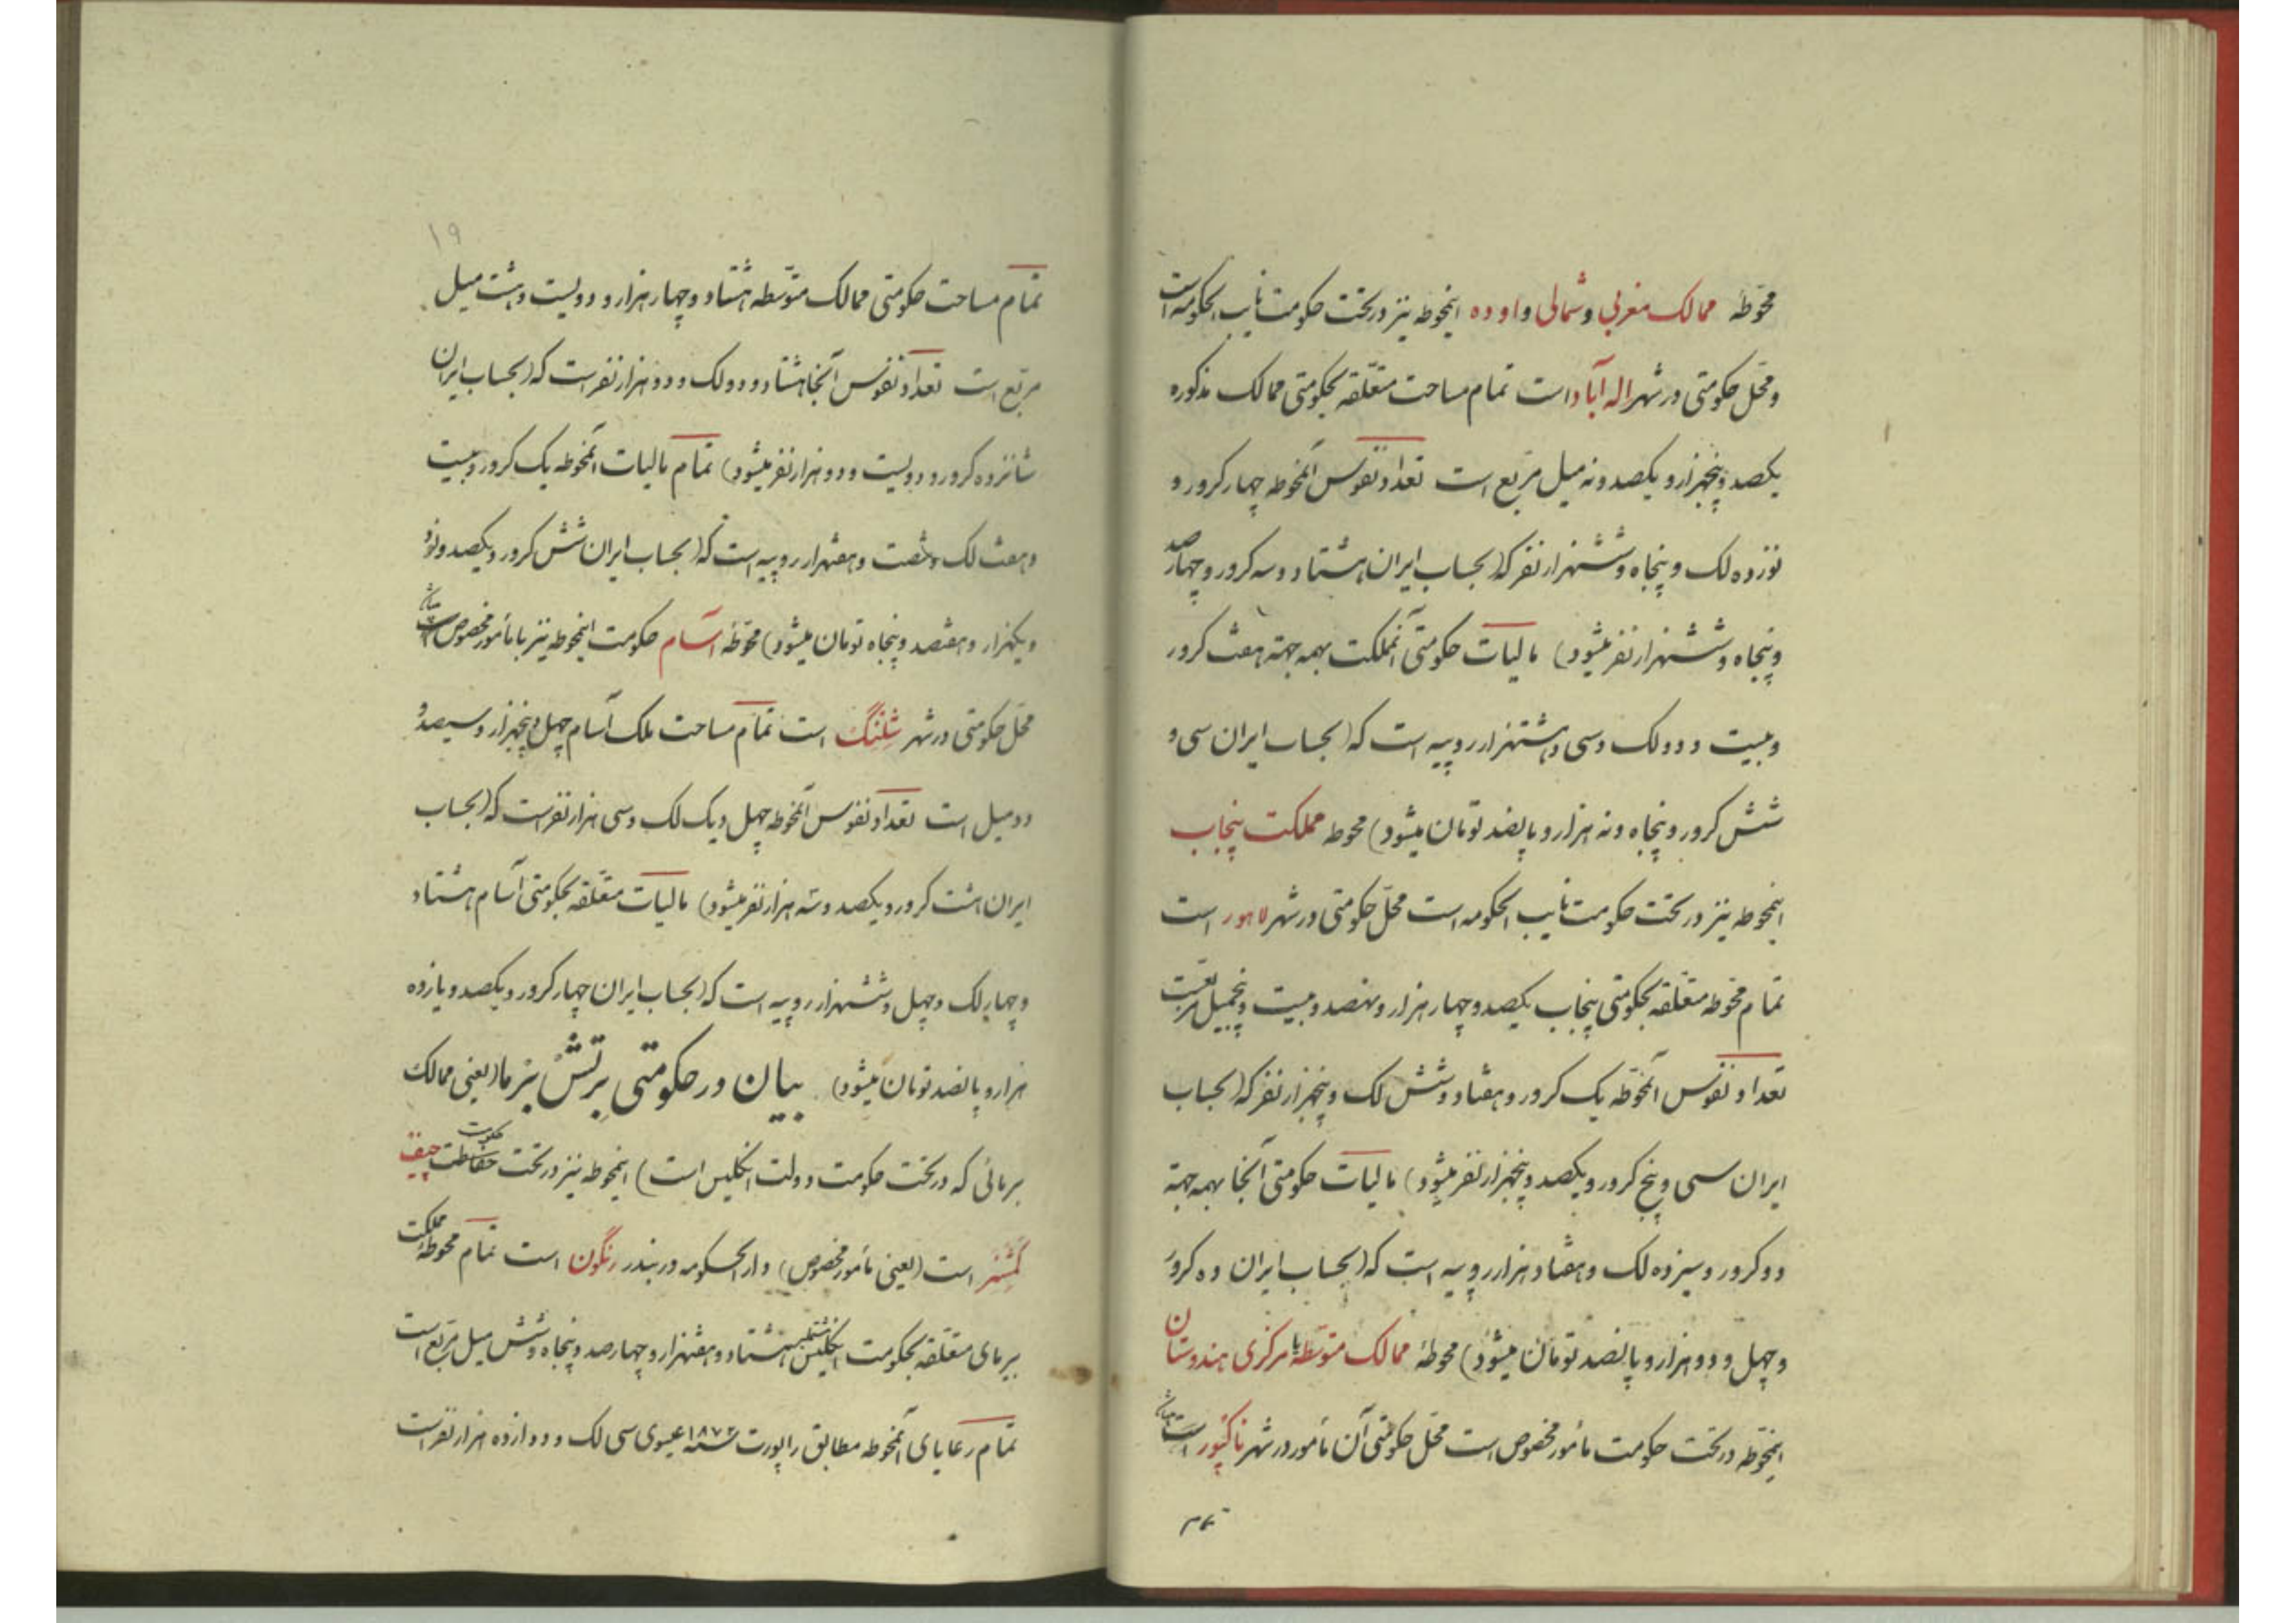 محوّطهٔ ممالک مغربی و شمالی و اوده اینمحوطه نیز در تحت حکومت نایب الحکومه است
و محّل حکومتی در شهر اله آباد است تمام مساحت متعّلقه بحکومتی ممالک مذکوره
یکصد و پنجهزار و یکصد و نه میل مربّع است تعداد نفوس آنمحوطه چهار کرور و
نوزده لک و پنجاه و ششهزار نفر که (بحساب ایران هشتاد و سه کرور و چهار صد
و پنجاه و ششهزار نفر میشود) مالیات حکومتی آنمملکت بهمه جهته هفت کرور
و بیست و دو لک و سی و هشتهزار روپیه است که (بحساب ایران سی و
شش کرور و پنجاه و نه هزار و پانصد تومان میشود) محوطه مملکت پنجاب
اینمحوطه نیز در تحت حکومت نایب الحکومه است محّل حکومتی در شهر لاهور است
تمام محوّطه متعّلقه بحکومتی پنجاب یکصد و چهار هزار و نهصد و بیست و پنجمیل مربعست
تعداد نفوس آنمحوّطه یک کرور و هفتاد و شش لک و پنجهزار نفر که (بحساب
ایران سی و پنج کرور و یکصد و پنجهزار نفر میشود) مالیات حکومتی آنجا بهمه جهته
دو کرور و سیزده لک و هفتاد هزار روپیه است که (بحساب ایران ده کرور
و چهل و دو هزار و پانصد تومان میشود) محوطهٔ ممالک متوّسطه یا مرکزی هندوستان
اینمحوّطه در تحت حکومت مأمور مخصوص است محّل حکومتی آن مأمور در شهر ناکپور است
تمام
۱۹
تمام مساحت حکومتی ممالک متوّسطه هشتاد و چهار هزار و دویست و هشت میل
مربّع است تعداد نفوس آنجا هشتاد و دو لک و دو هزار نفر است که (بحساب ایران
شانزده کرور و دویست و دو هزار نفر میشود) تمام مالیات آنمحوطه یک کرور و بیست
و هفت لک و شصت و هفتهزار روپیه است که (بحساب ایران شش کرور و یکصد و نود
و یکهزار و هفتصد و پنجاه تومان میشود) محوّطهٔ آسام حکومت اینمحوطه نیز با مأمور مخصوص است
محّل حکومتی در شهر شِلنگ است تمام مساحت ملک آسام چهل و پنجهزار و سیصد و
دو میل است تعداد نفوس آنمحوطه چهل و یک لک و سی هزار نفر است که (بحساب
ایران هشت کرور و یکصد و سه هزار نفر میشود) مالیات متعّلقه بحکومتی آسام هشتاد
و چهار لک و چهل و ششهزار روپیه است که (بحساب ایران چهار کرور و یکصد و یازده
هزار و پانصد تومان میشود) بیان در حکومتی بِرِتِشْ بَرْما (یعنی ممالک
برمائی که در تحت حکومت دولت انگلیس است) اینمحوطه نیز در تحت حکومت چیف
کمشنر است (یعنی مأمور مخصوص) دار الحکومه در بندر رنگون است تمام محوطهٔ مملکت
بیرمای متعّلقه بحکومت انگلیس هشتاد و هفتهزار و چهارصد و پنجاه و شش میل مربّع است
تمام رعایای آنمحوطه مطابق راپورت سنه ۱۸۷۲ عیسوی سی لک و دوازده هزار نفر است